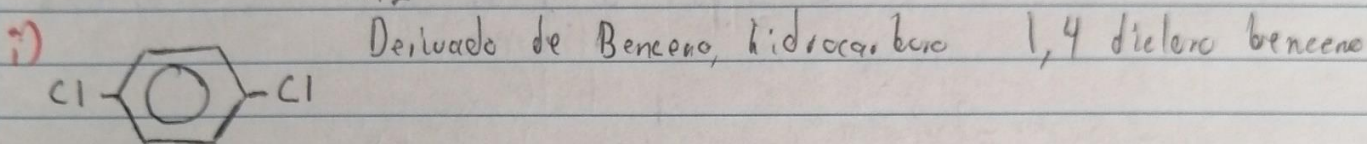 i) Derivado de Benceno, hidrocarburo 1,4 dicloro benceno
Cl Cl